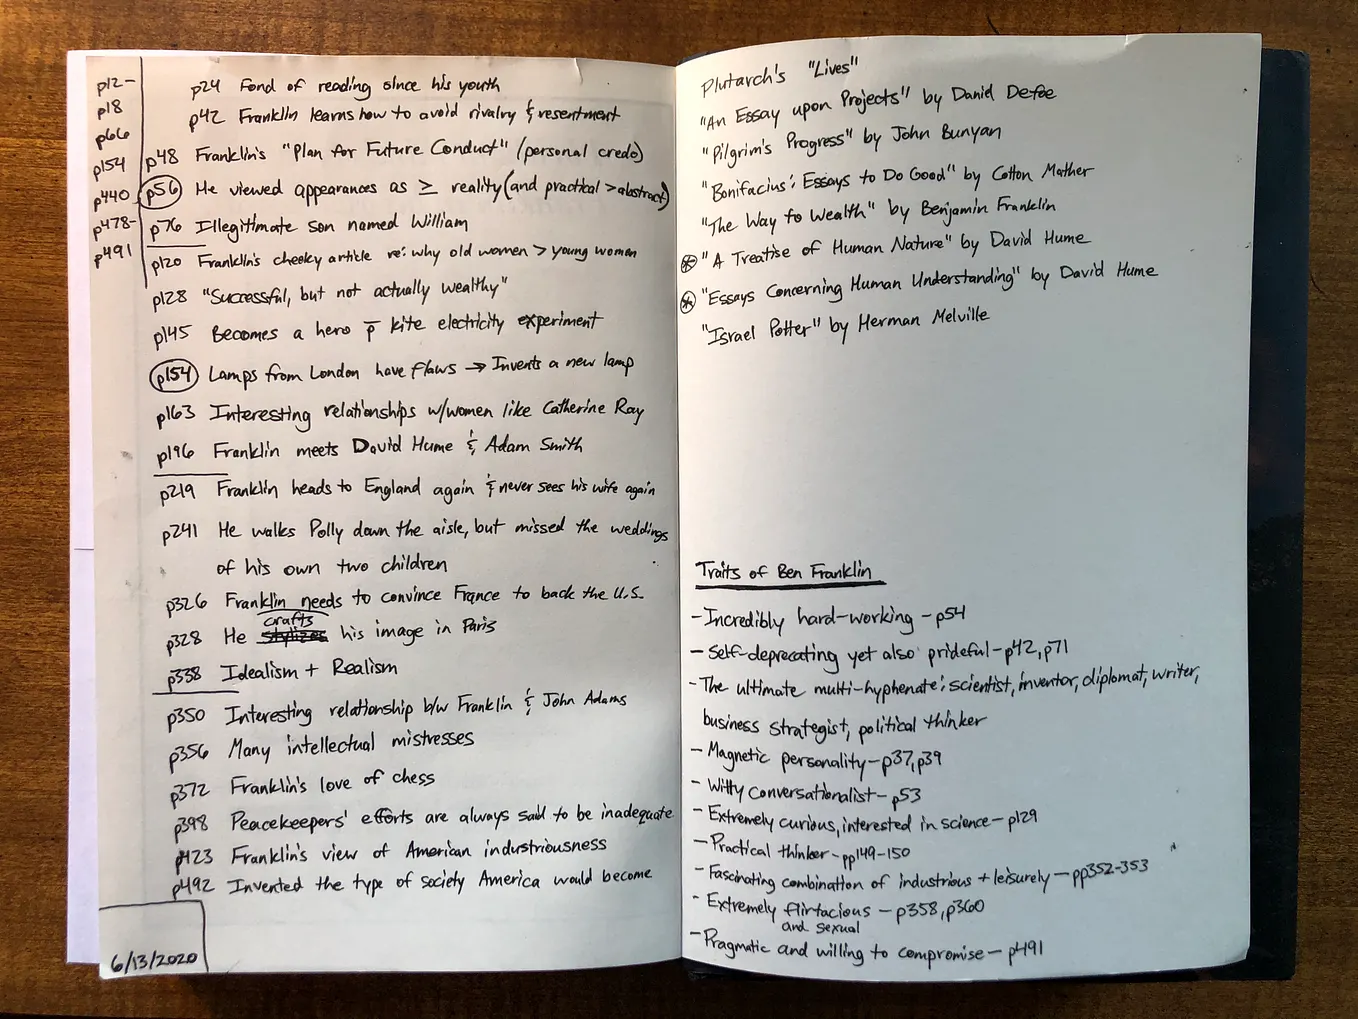 p12-
p18
p66
p154
p440
p478-
p491
p24 Fond of reading since his youth
p42 Franklin learns how to avoid rivalry & resentment
p48 Franklin's "Plan for Future Conduct" (personal credo)
p56 He viewed appearances as ≥ reality (and practical > abstract)
p76 Illegitimate son named William
p120 Franklin's cheeky article re: why old women > young women
p128 "Successful, but not actually wealthy"
p145 Becomes a hero p̄ kite electricity experiment
p154 Lamps from London have flaws → Invents a new lamp
p163 Interesting relationships w/women like Catherine Ray
p196 Franklin meets David Hume & Adam Smith
p219 Franklin heads to England again & never sees his wife again
p241 He walks Polly down the aisle, but missed the weddings
of his own two children
p326 Franklin needs to convince France to back the U.S.
p328 He crafts his image in Paris
p338 Idealism + Realism
p350 Interesting relationship b/w Franklin & John Adams
p356 Many intellectual mistresses
p372 Franklin's love of chess
p398 Peacekeepers' efforts are always said to be inadequate
p423 Franklin's view of American industriousness
p492 Invented the type of society America would become
6/13/2020
Plutarch's "Lives"
"An Essay upon Projects" by Daniel Defoe
"Pilgrim's Progress" by John Bunyan
"Bonifacius: Essays to Do Good" by Cotton Mather
"The Way to Wealth" by Benjamin Franklin
* "A Treatise of Human Nature" by David Hume
* "Essays Concerning Human Understanding" by David Hume
"Israel Potter" by Herman Melville
Traits of Ben Franklin
- Incredibly hard-working - p54
- Self-deprecating yet also prideful - p42, p71
- The ultimate multi-hyphenate: scientist, inventor, diplomat, writer,
business strategist, political thinker
- Magnetic personality - p37, p39
- Witty conversationalist - p53
- Extremely curious, interested in science - p129
- Practical thinker - pp149-150
- Fascinating combination of industrious + leisurely - pp352-353
- Extremely flirtacious - p358, p360
and sexual
- Pragmatic and willing to compromise - p491